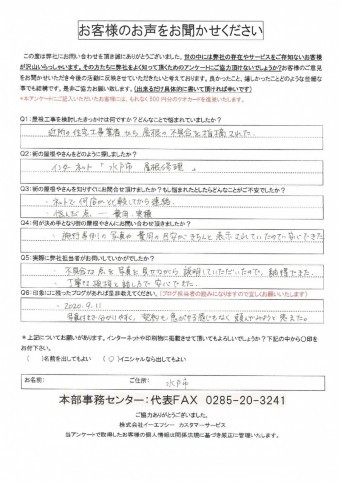 お客様のお声をお聞かせください
この度は弊社にお問い合わせを頂き誠にありがとうございました。世の中には弊社の存在やサービスをご存知ないお客様
が沢山いらっしゃいます。その方たちに弊社をよく知って頂くためのアンケートにご協力頂けないでしょうか?お客様のご意見
をお聞かせいただき今後の活動に反映させていただきたいと考えております。良かったこと、嬉しかったことどのような些細な
事でも結構です。是非ご協力お願い致します。(出来るだけ具体的に書いて頂ければ幸いです)
*本アンケートにご記入いただいたお客様には、もれなく500円分のクオカードを進呈いたします。
Q1:屋根工事を検討したきっかけは何ですか?どんなことで悩まれていましたか?
近所の住宅工事業者から屋根の不具合を指摘された。
Q2:街の屋根やさんをどのように探しましたか?
インターネット「水戸市 屋根修理」
Q3:街の屋根やさんを知りすぐにお問合せ頂けましたか?もし悩まれたとしたらどんなことがご不安でしたか?
・ネットで何合かと比較してから連絡
・悩んだ点 … 費用、実積
Q4:何が決め手となり街の屋根やさんにお問い合わせ頂きましたか?
施行事例の写真や費用の目安がきちんと表示されていたので安心できた
Q5:実際に弊社担当者がお伺いしていかがでしたか?
・不具合な点を写真を見せながら説明していただいたので、納得できた。
・丁寧な後場と話し方で安心できた。
Q6:印象にに残ったブログがあれば是非教えてください!(ブログ担当者の励みになりますので宜しくお願いします)
2020.9.11
写真付きで分かりやすく、契約も急がせる感じもなく頼んでみようと思えた。
*上記についてお願いがあります。インターネットや印刷物に掲載させて頂いてもよろしいでしょうか?下記の中から〇印を
お付下さい。
( )名前を出してもよい (〇)イニシャルなら出してもよい
お名前: ご住所: 水戸市
本部事務センター:代表FAX 0285-20-3241
ご協力ありがとうございました。
株式会社イーエフシー カスタマーサービス
当アンケートで取得したお客様の個人情報は関係法規に基づき厳正に管理いたします。